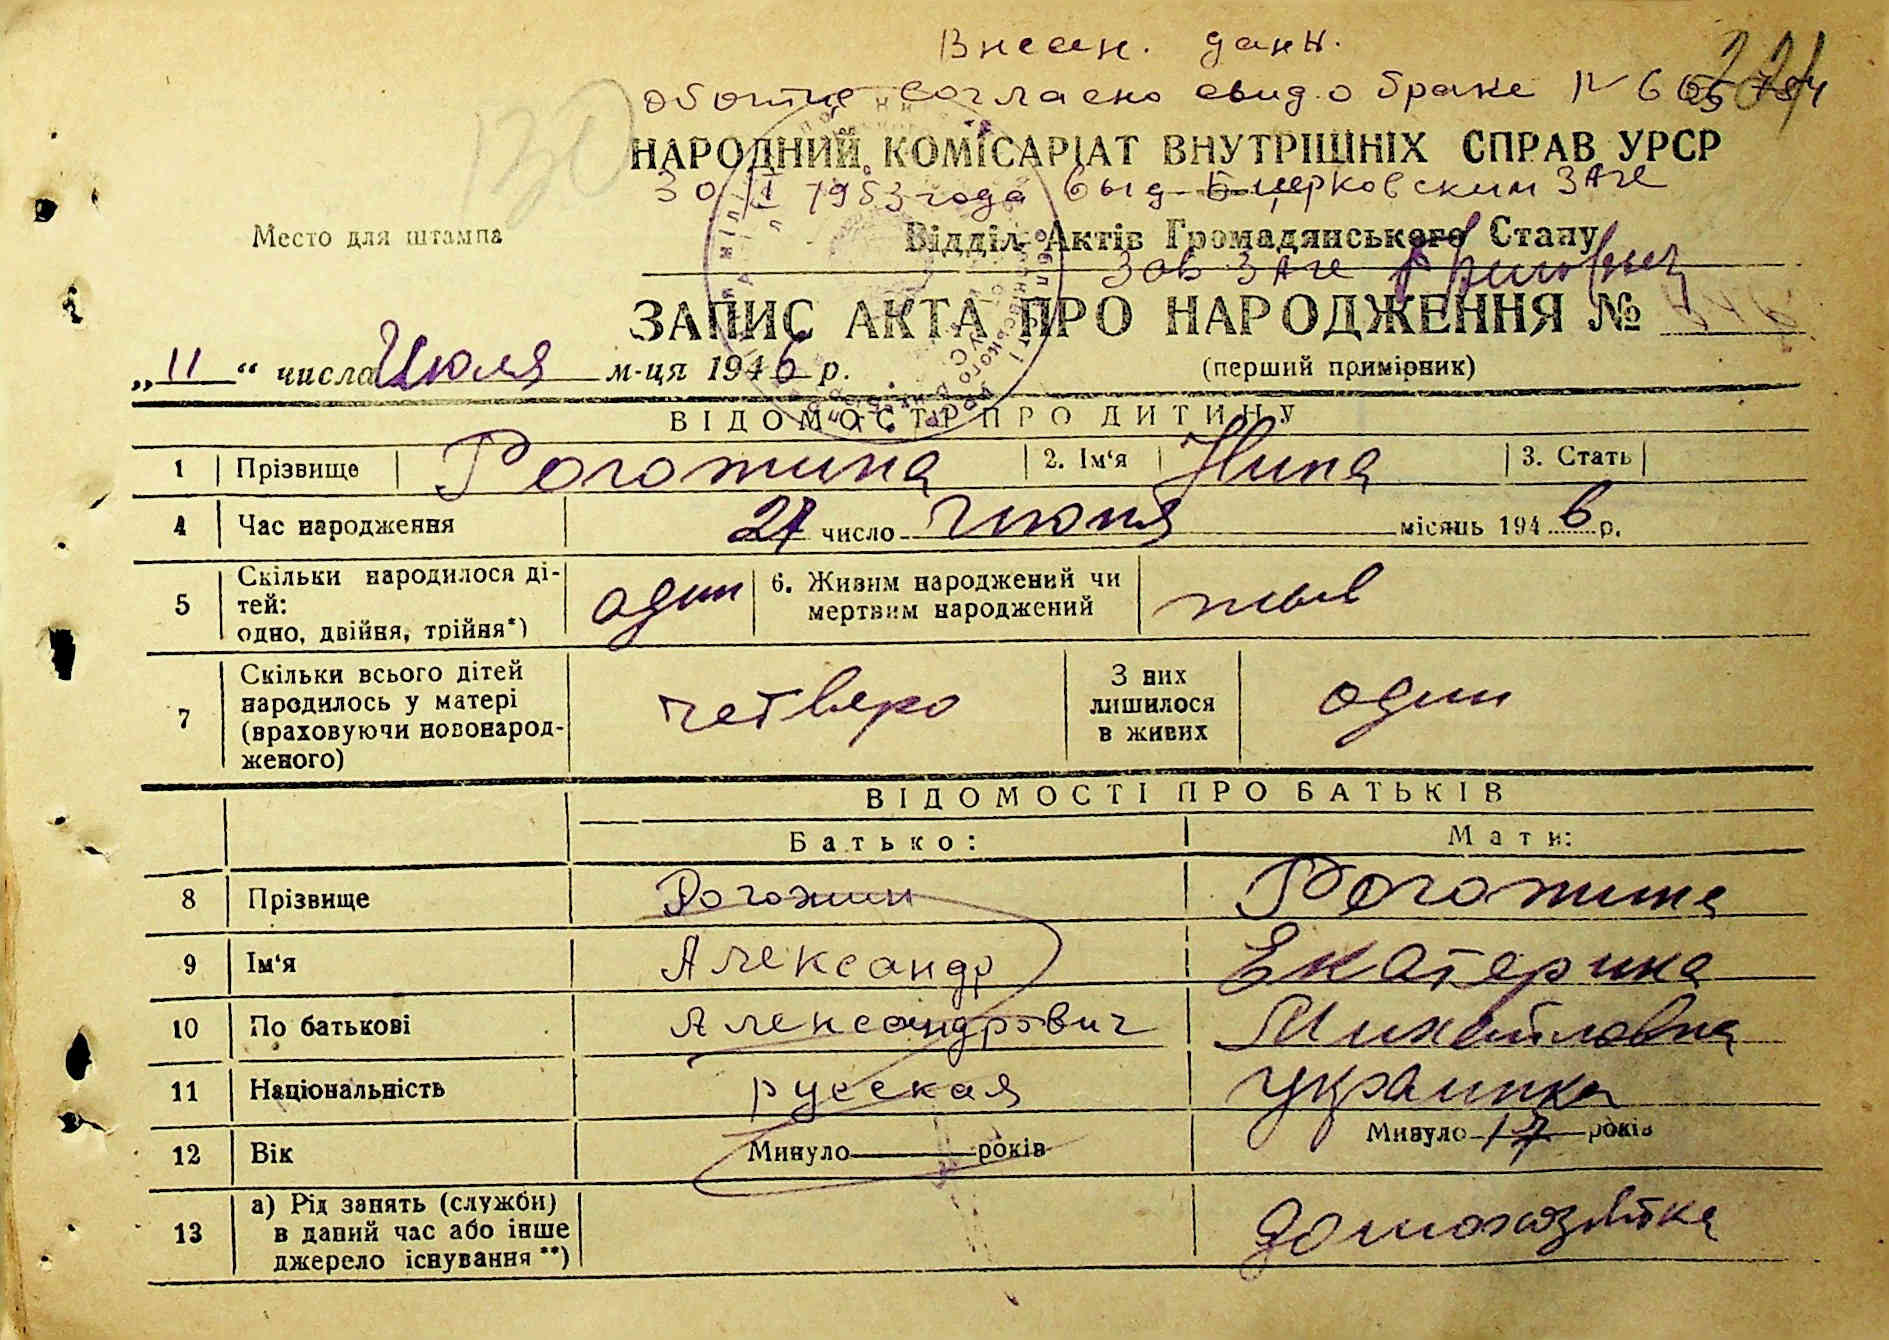 Внесен. данн.
об отце согласно свид. о браке N
НАРОДНИЙ КОМІСАРІАТ ВНУТРІШНІХ СПРАВ УРСР
30 1953 года выд Б церковским ЗАГС
Место для штампа
Відділ Актів Громадянського Стану
Зав ЗАГС
ЗАПИС АКТА ПРО НАРОДЖЕННЯ №
„11“ числа Июля м-ця 1946 р.
(перший примірник)
ВІДОМОСТІ ПРО ДИТИНУ
1 Прізвище Рогожина 2. Ім'я Нина 3. Стать
4 Час народження 27 число Июня місяць 1946 р.
5 Скільки народилося ді-
тей:
одно, двійня, трійня*)
один
6. Живим народжений чи
мертвим народжений
жив
7 Скільки всього дітей
народилось у матері
(враховуючи новонарод-
женого)
четверо
З них
лишилося
в живих
один
ВІДОМОСТІ ПРО БАТЬКІВ
Батько: Мати:
8 Прізвище Рогожин Рогожина
9 Ім'я Александр Екатерина
10 По батькові Александрович Михайловна
11 Національність русская украинка
12 Вік Минуло років Минуло 17 років
13 а) Рід занять (служби)
в даний час або інше
джерело існування **)
домохозяйка